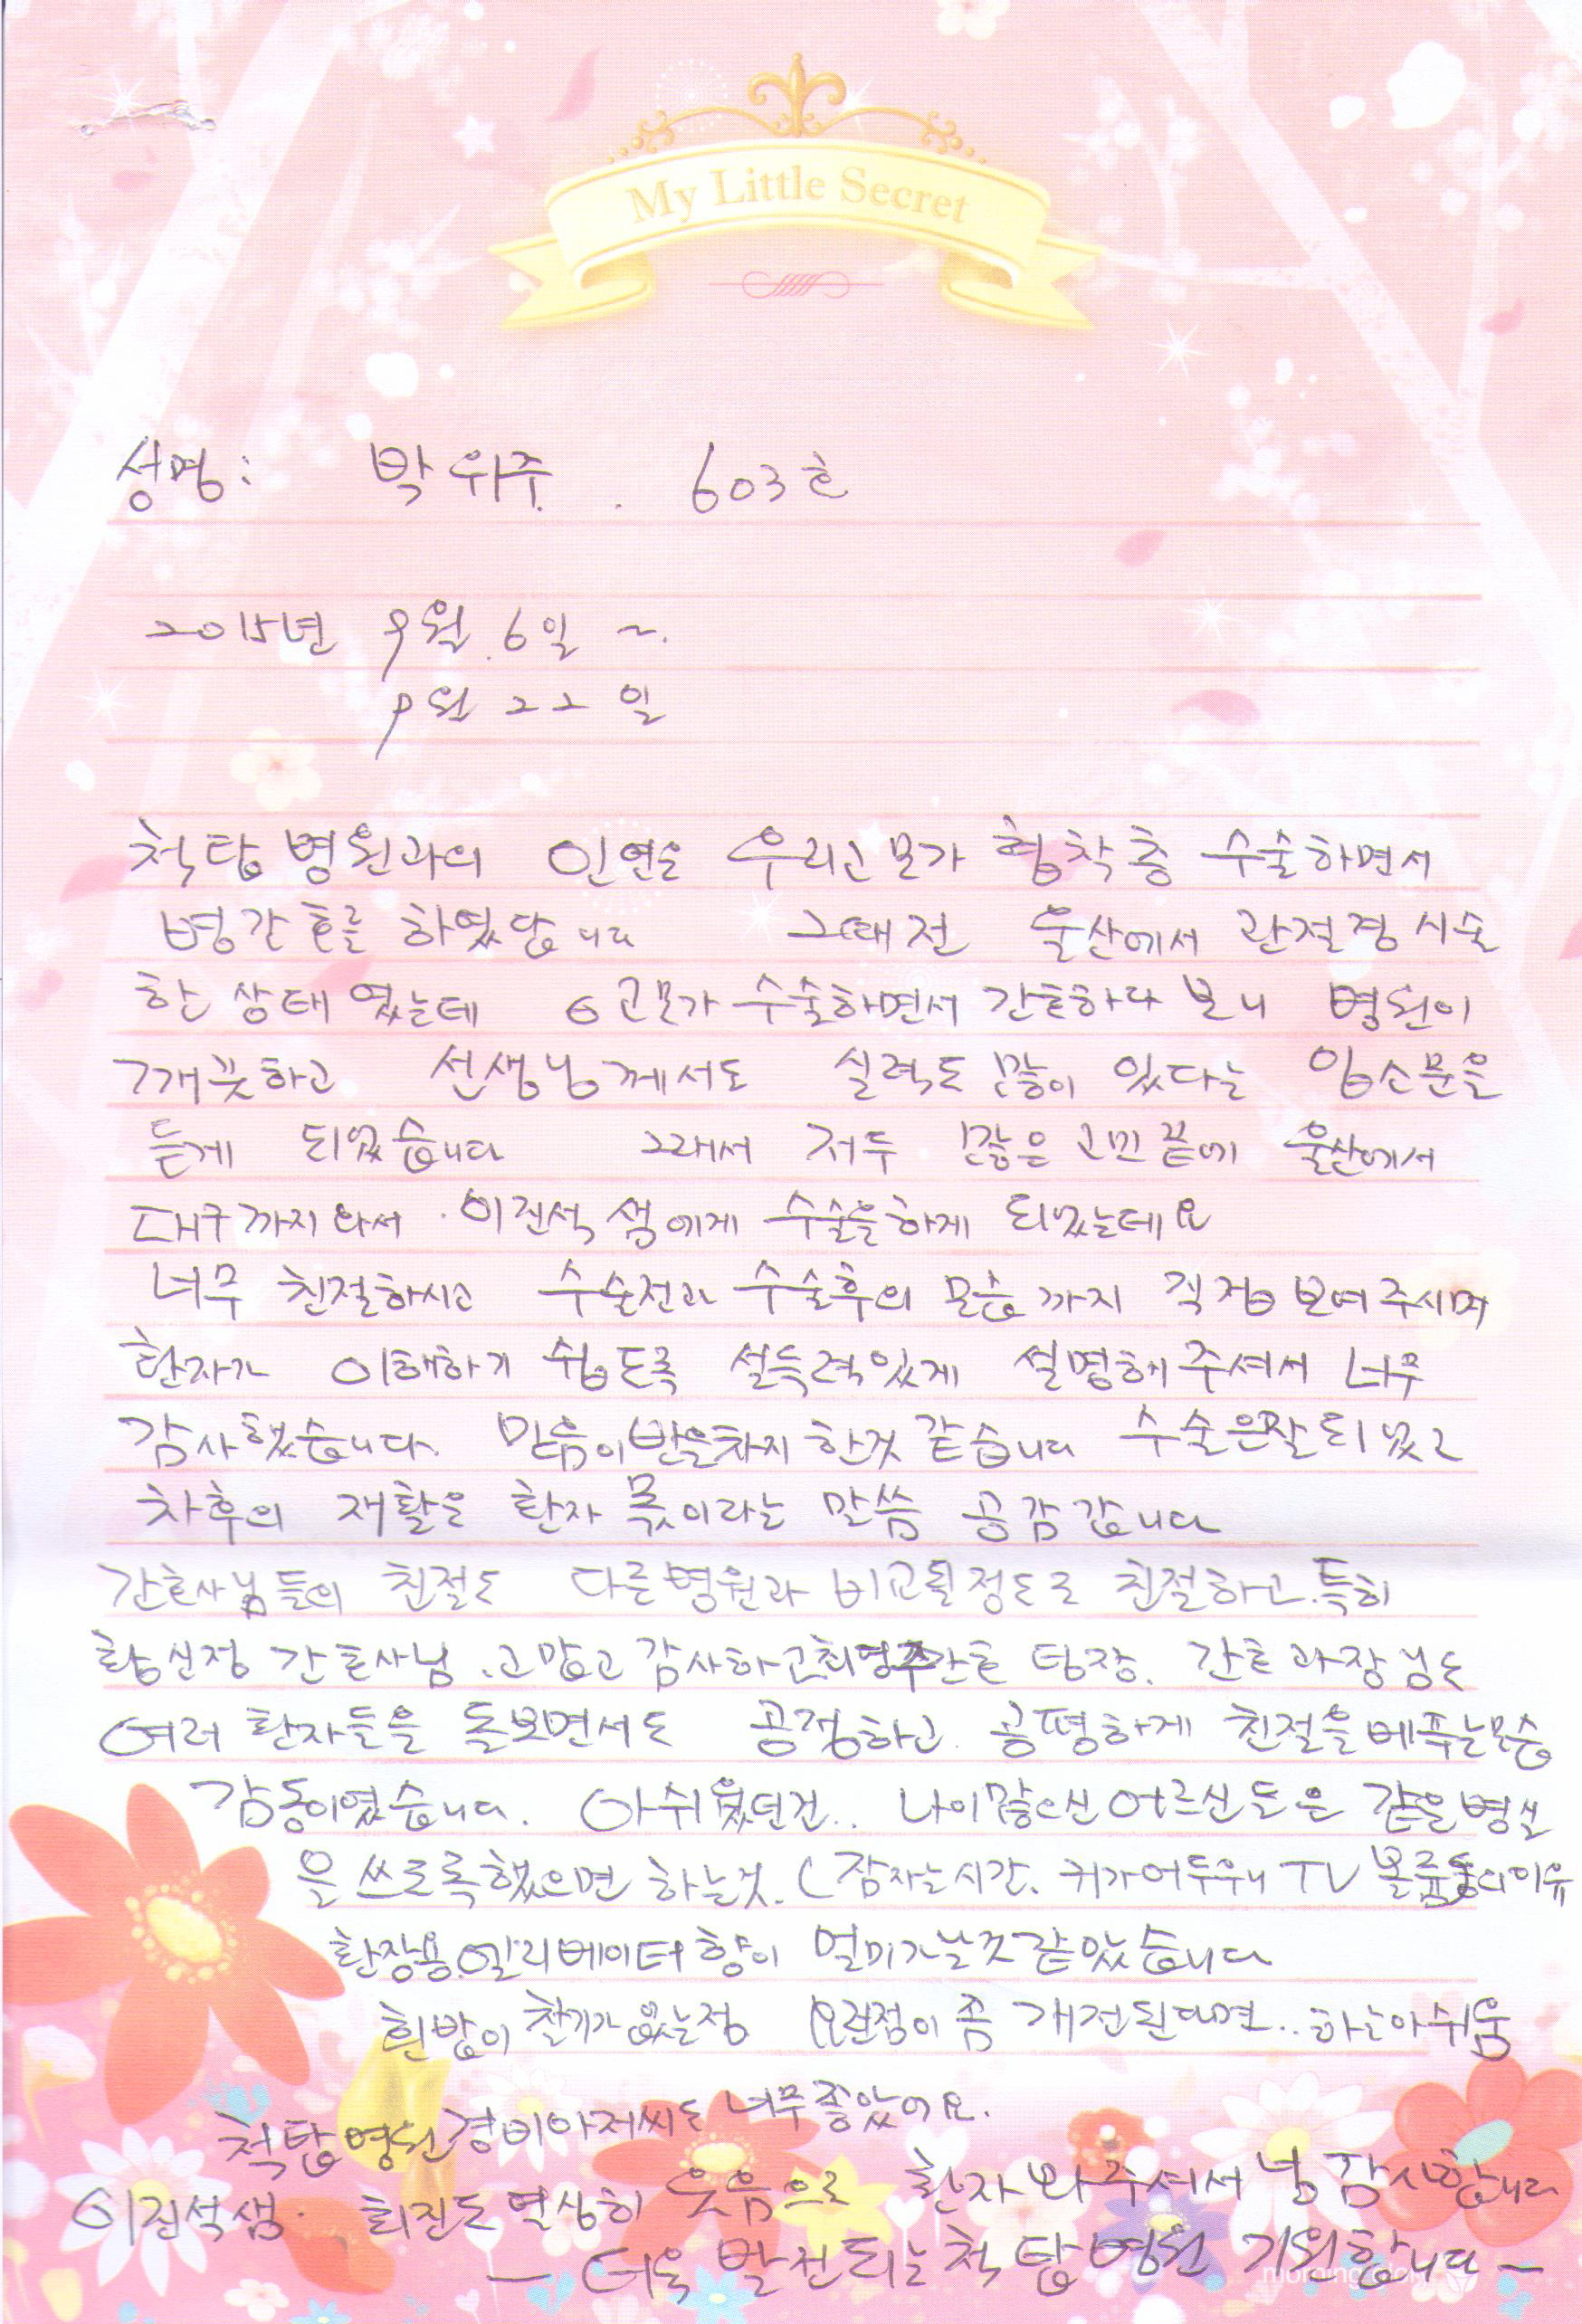 My Little Secret
성명: 박위주 . 603호
2015년 9월 6일 ~.
9월 22일
척탑병원과의 인연은 우리고모가 협착증 수술하면서
병간호를 하였답니다 그때전 울산에서 관절경시술
한 상태였는데 고모가 수술하면서 간호하다 보니 병원이
깨끗하고 선생님께서도 실력도 많이 있다는 입소문을
듣게 되었습니다 그래서 저두 많은 고민끝에 울산에서
대구까지 와서 . 이진석 샘에게 수술을하게 되었는데요
너무 친절하시고 수술전과 수술후의 모습까지 직접 보여주시며
환자가 이해하기 쉽도록 설득력있게 설명해주셔서 너무
감사했습니다. 믿음이반을차지한것 같습니다 수술은잘되었고
차후의 재활은 환자 몫이라는 말씀 공감갑니다
간호사님들의 친절도 다른병원과 비교될정도로 친절하고.특히
황신정 간호사님.고맙고 감사하고최영주간호 팀장. 간호과장님도
여러 환자들을 돌보면서도 공정하고. 공평하게 친절을베푸는모습
감동이였습니다. 아쉬웠던건.. 나이많으신어르신들은 같은병실
을 쓰도록했으면 하는것.(잠자는시간. 귀가어두우니 TV 볼륨등의이유
환장용.엘리베이터 향이 멀미가날것같았습니다
흰밥이 찰기가없는점 요런점이 좀 개선된다면..하는아쉬움
척탑병원경비아저씨도 너무좋았어요.
이진석샘. 회진도 열심히 웃음으로 환자 봐주셔서 넘 감사합니다
— 더욱 발전되는척탑병원 기원합니다 —
morning